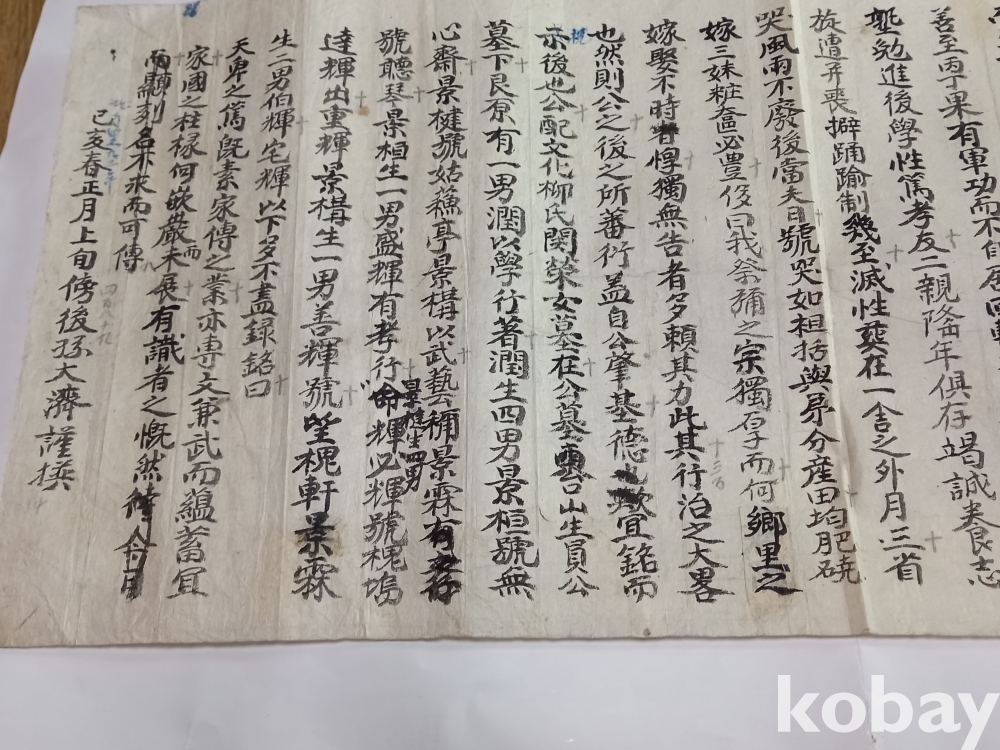 善至丙丁果有軍功而不自居四
塾勉進後學性篤孝友二親隆年俱存竭誠养食志
旋遭并喪擗踊踰制幾至滅性葬在一舍之外月三省
哭風雨不廢後當夫日號哭如袒括與昆分産田均肥磽
嫁三妹粧奩必豊侈曰我祭禰之宗獨存于而何鄉里之
嫁娶不時惸獨無告者多賴其力此其行治之大畧
也然則公之後之所蕃衍盖自公肇基德也歟宜銘而
示後也公配文化柳氏関榮女墓在公墓雲台山生員公
墓下艮原有一男潤以學行著潤生四男景桓號無
心齋景楗號姑蘓亭景構以武藝稱景霖有
號聽琴景相生一男盛輝有孝行命輝必輝號槐塢
景楗生四男
達輝出重輝景構生一男善輝號望槐軒景霖
生二男伯輝宅輝以下多不盡録銘曰
天卑之篤旣素家傳之業亦專文兼武而蘊蓄宜
家國之柱椽何嵌嚴而未展有識者之慨然
而顯刻名不求而可傳
己亥春正月上旬傍後孫大濟謹撰
kobay